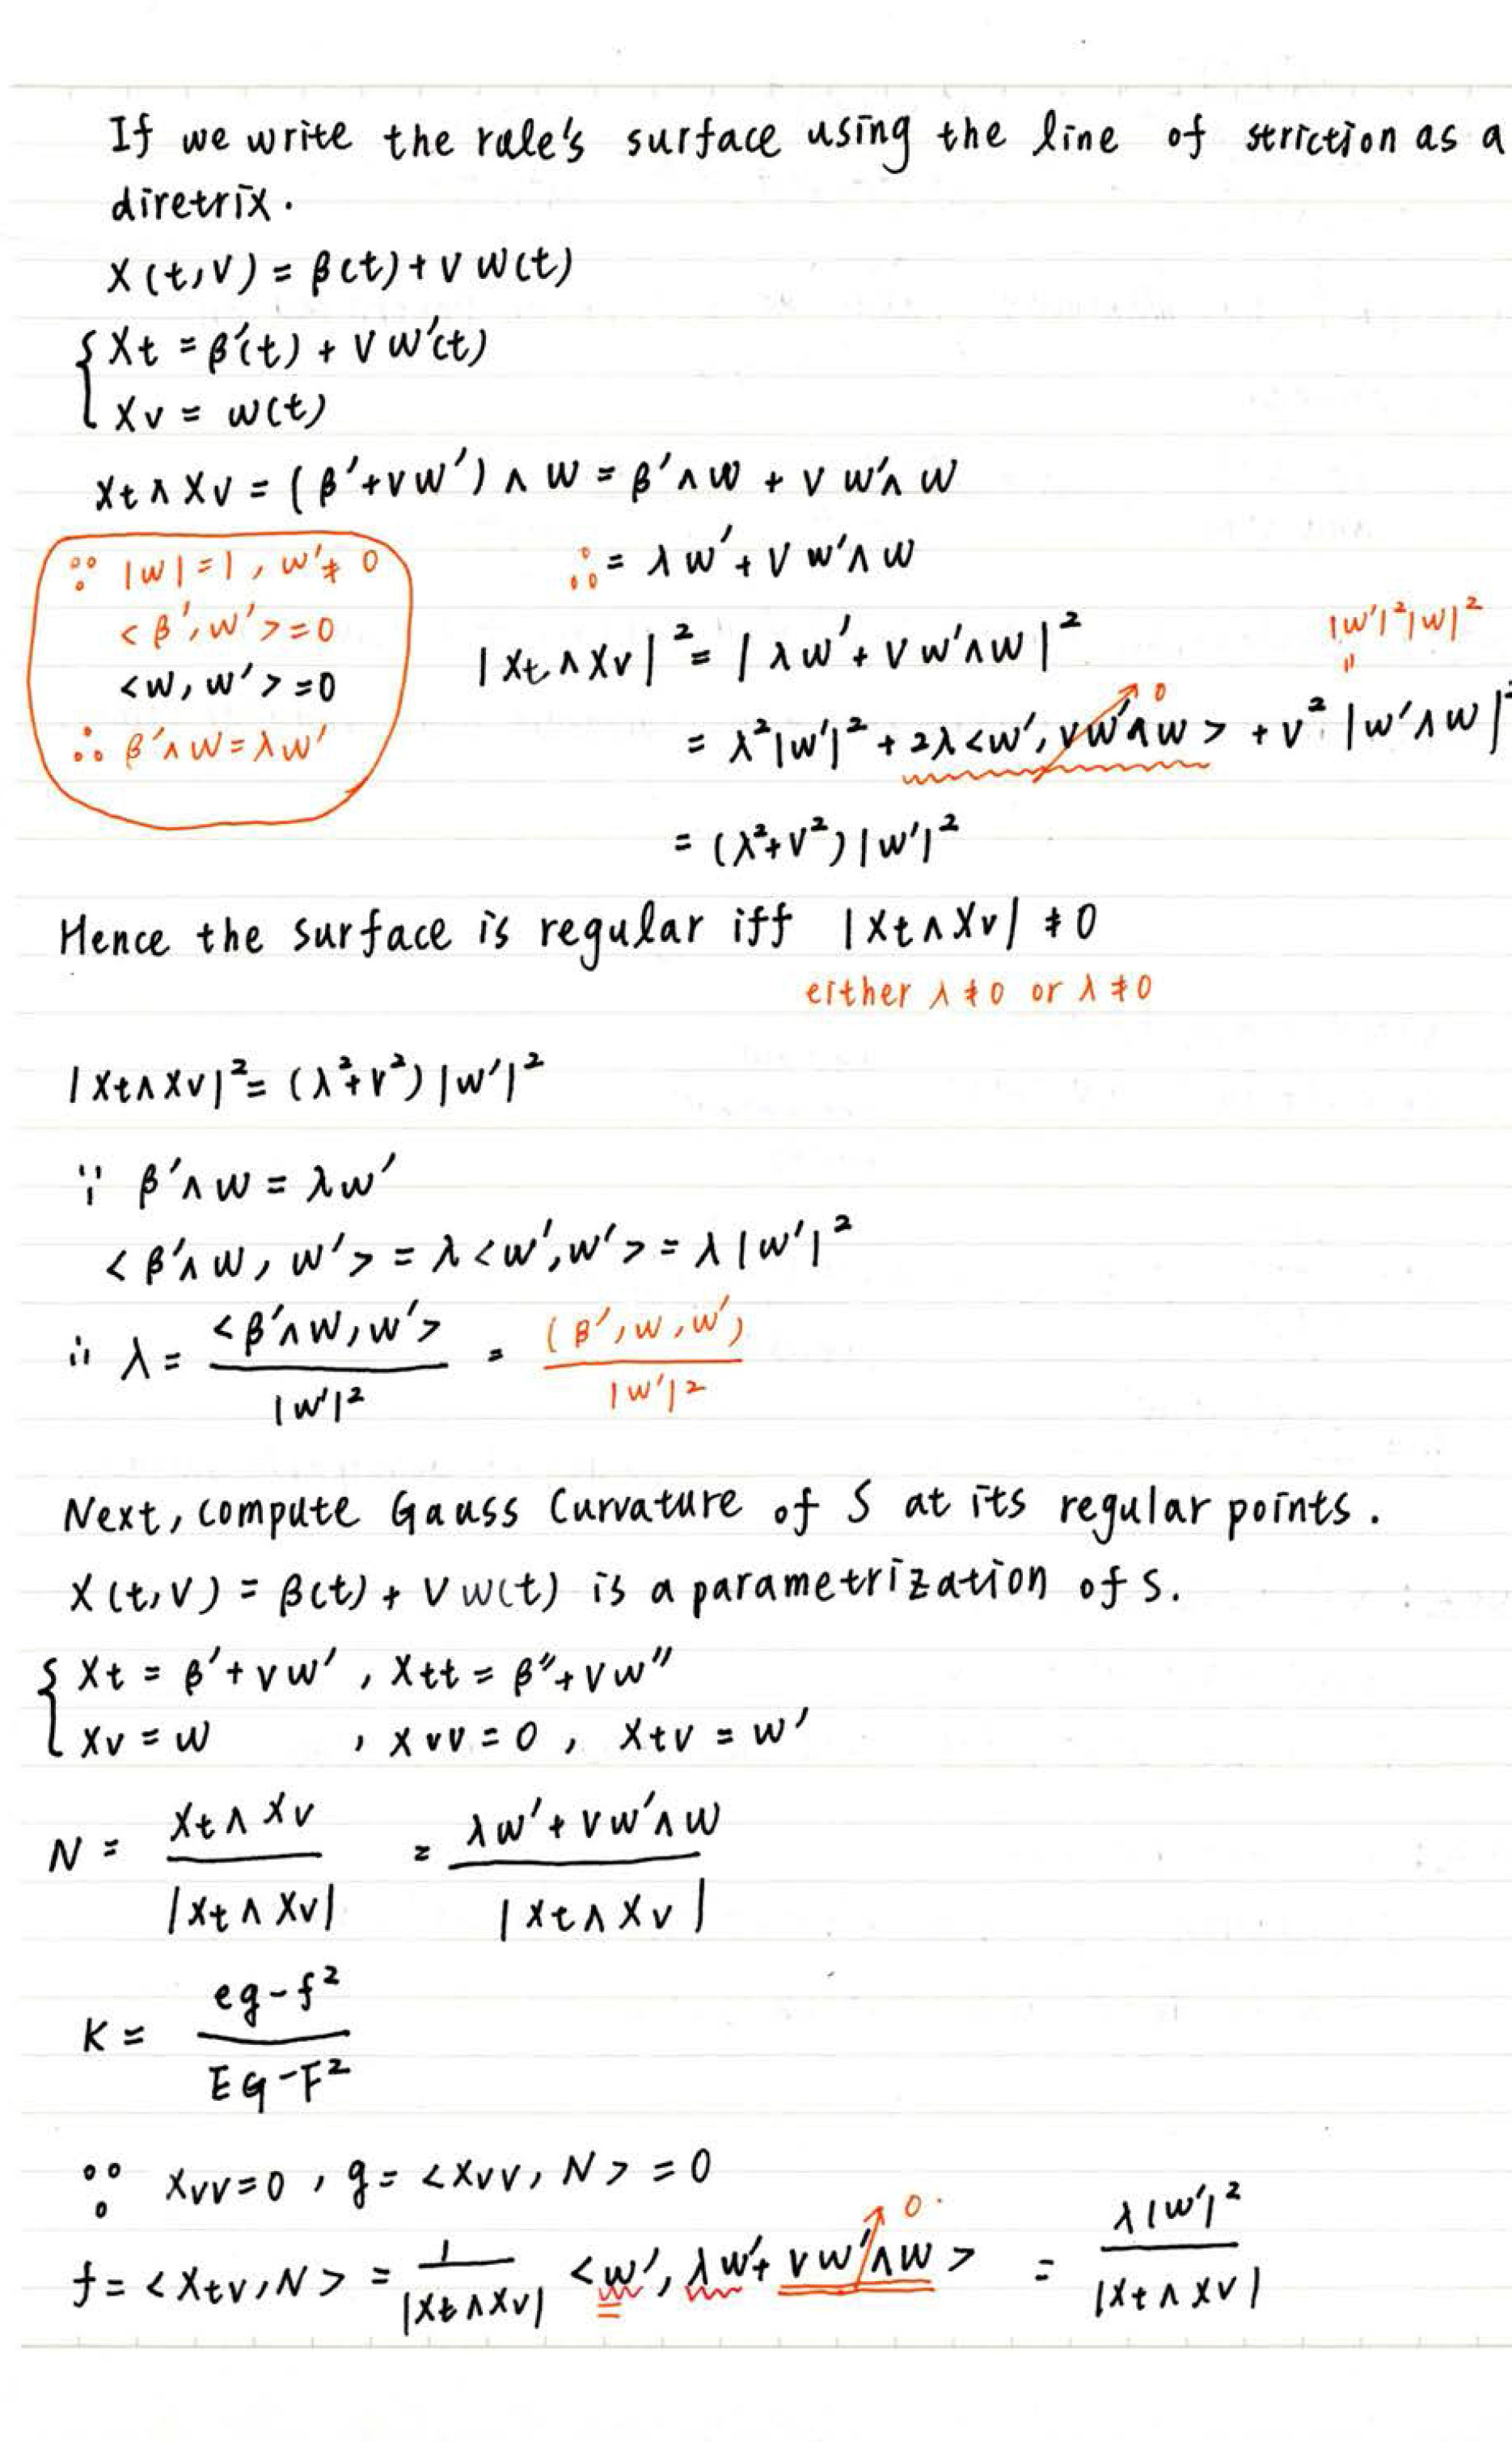 If we write the rule's surface using the line of striction as a
diretrix.
X(t,v) = β(t) + v w(t)
{ Xt = β'(t) + v w'(t)
Xv = w(t)
Xt ∧ Xv = (β' + v w') ∧ w = β' ∧ w + v w' ∧ w
∵ |w| = 1, w' ≠ 0
<β', w'> = 0
<w, w'> = 0
∴ β' ∧ w = λw'
∴ = λw' + v w' ∧ w
|Xt ∧ Xv|² = |λw' + v w' ∧ w|²
|w'|²|w|²
"
= λ²|w'|² + 2λ<w', v w' ∧ w> + v² |w' ∧ w|²
0
= (λ² + v²)|w'|²
Hence the surface is regular iff |Xt ∧ Xv| ≠ 0
either λ ≠ 0 or λ ≠ 0
|Xt ∧ Xv|² = (λ² + v²)|w'|²
∵ β' ∧ w = λw'
<β' ∧ w, w'> = λ<w', w'> = λ|w'|²
∴ λ = <β' ∧ w, w'> / |w'|² = (β', w, w') / |w'|²
Next, compute Gauss Curvature of S at its regular points.
X(t,v) = β(t) + v w(t) is a parametrization of S.
{ Xt = β' + v w', Xtt = β'' + v w''
Xv = w , Xvv = 0, Xtv = w'
N = Xt ∧ Xv / |Xt ∧ Xv| = λw' + v w' ∧ w / |Xt ∧ Xv|
K = eg - f² / EG - F²
∵ Xvv = 0, g = <Xvv, N> = 0
0.
f = <Xtv, N> = 1 / |Xt ∧ Xv| <w', λw' + v w' ∧ w> = λ|w'|² / |Xt ∧ Xv|